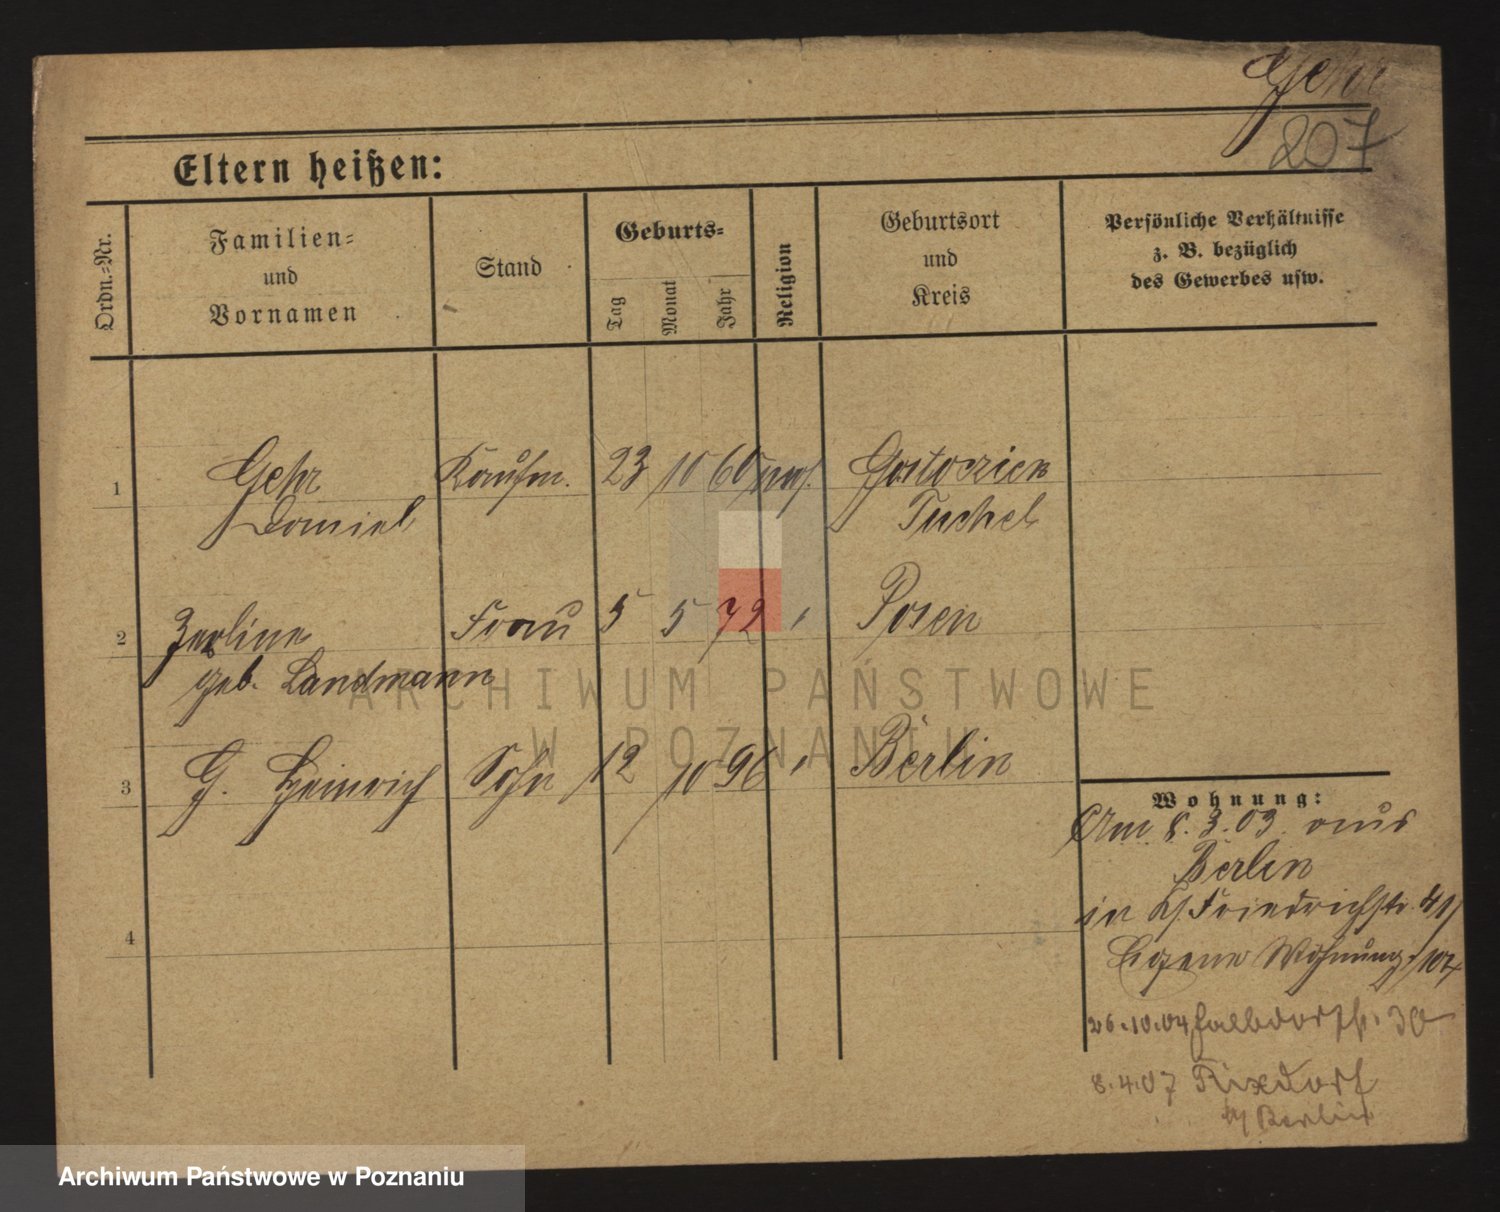 Gehr
207
Eltern heißen:
Ordn.-Nr.
Familien-
und
Vornamen
Stand
Geburts-
Tag
Monat
Jahr
Religion
Geburtsort
und
Kreis
Persönliche Verhältnisse
z. B. bezüglich
des Gewerbes usw.
1 Gehr Kaufm. 23 10 60 mos. Gostoczick
Daniel Tuchel
2 Zerline Frau 5 5 72 " Posen
geb. Landmann
3 G. Heinrich Sohn 12 10 96 " Berlin
4
Wohnung:
Am 8.3.03. aus
Berlin
in Friedrichstr.
Eigene Wohnung
26.10.04 30
8.4.07 Rixdorf
b/ Berlin
ARCHIWUM PAŃSTWOWE
W POZNANIU
Archiwum Państwowe w Poznaniu